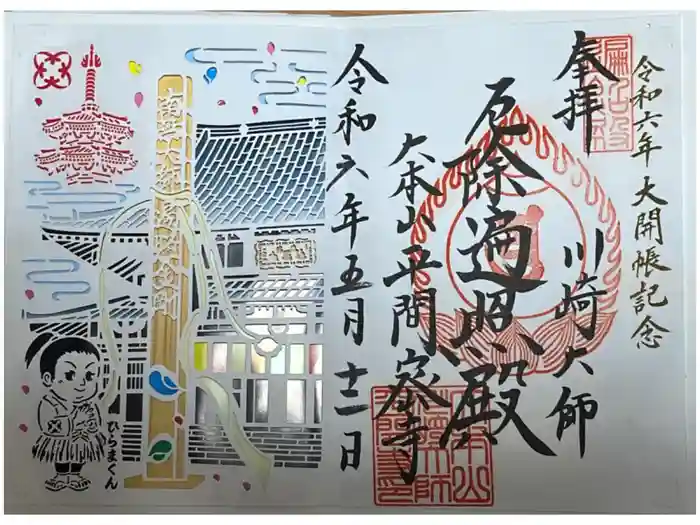 令和六年大開帳記念
奉拝
川崎大師
厄除遍照殿
大本山平間密寺
令和六年五月十二日
南無大師遍照金剛
ひらまくん